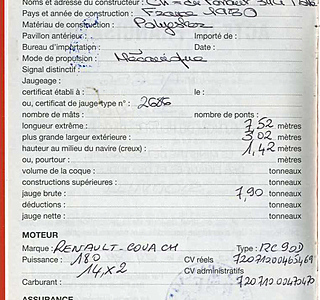 Noms et adresse du constructeur : Ch=
Pays et année de construction : France 1980
Matériau de construction : Polyester
Pavillon antérieur : Importé de :
Bureau d'importation : Date :
Mode de propulsion : Mécanique
Signal distinctif :
Jaugeage :
certificat établi à : le :
ou, certificat de jauge type n° : 2686
nombre de mâts : nombre de ponts :
longueur extrême : 7,52 mètres
plus grande largeur extérieure : 3,02 mètres
hauteur au milieu du navire (creux) : 1,42 mètres
ou, pourtour : mètres
volume de la coque : tonneaux
constructions supérieures : tonneaux
jauge brute : 7,90 tonneaux
déductions : tonneaux
jauge nette : tonneaux
MOTEUR
Marque : RENAULT-COUACH Type : RC 90D
Puissance : 180 CV réels 72071000465469
14,X2 CV administratifs
Carburant : 72071000470470
ASSURANCE